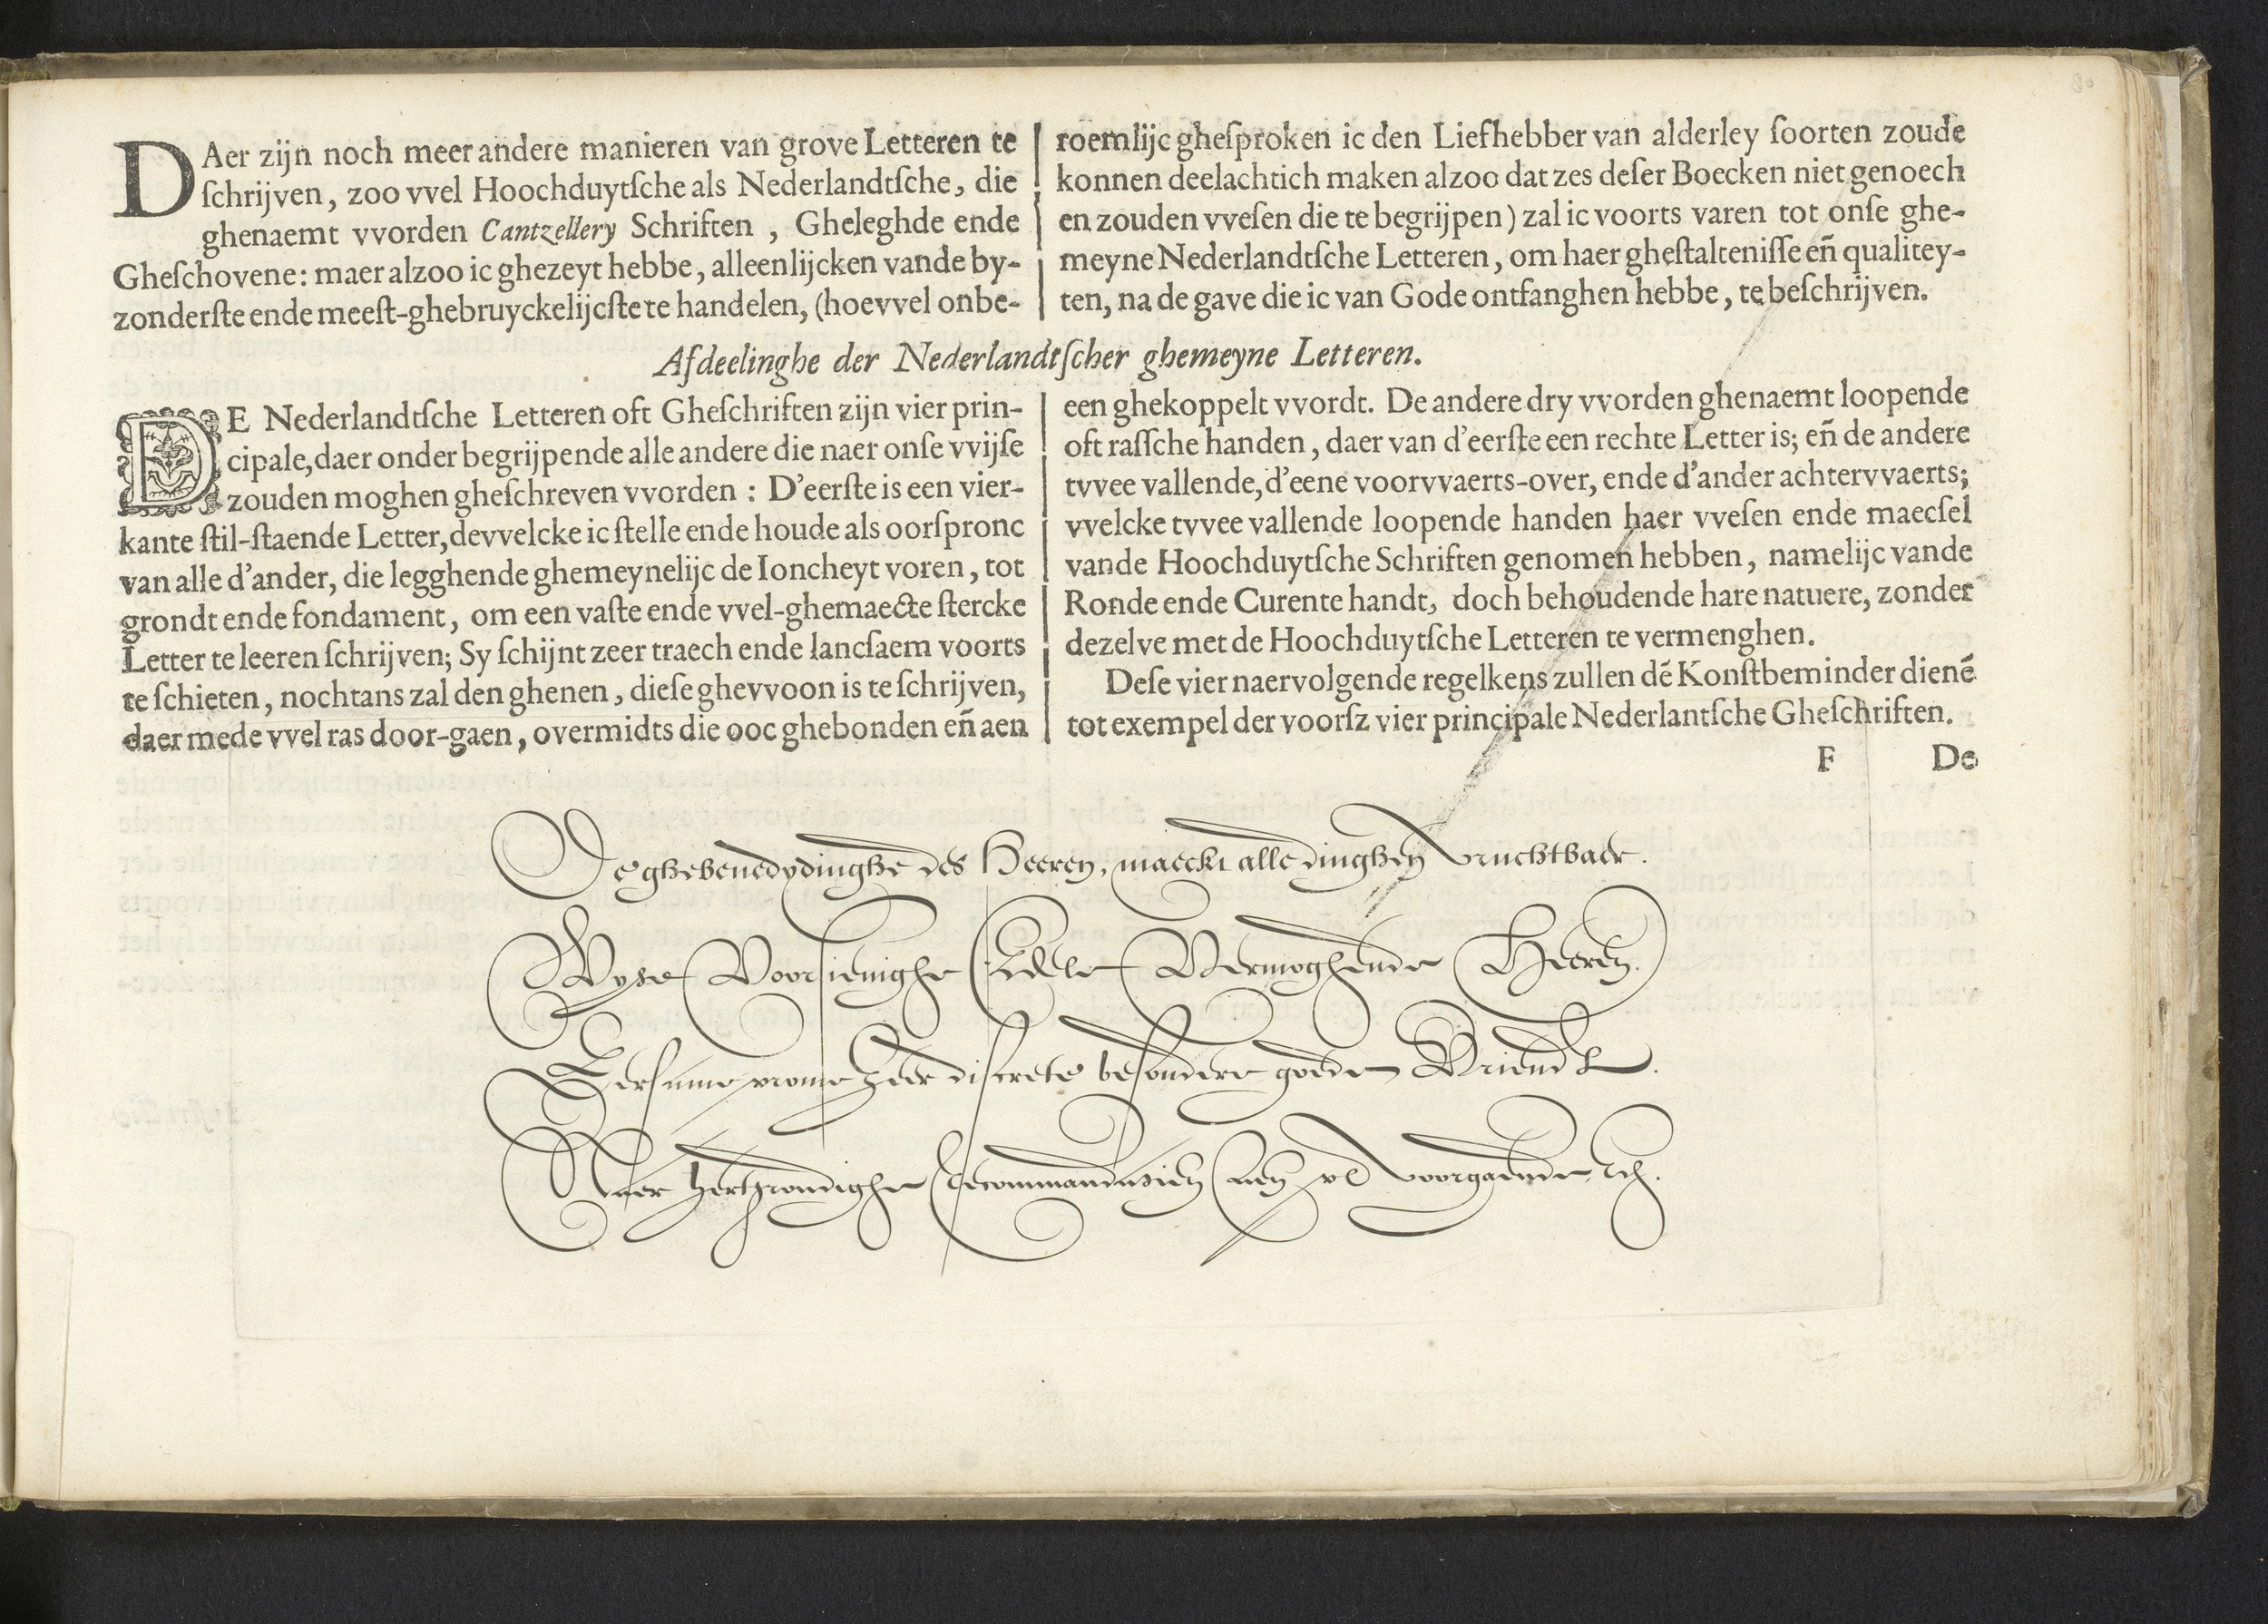 DAer zijn noch meer andere manieren van grove Letteren te
ſchrijven, zoo vvel Hoochduytſche als Nederlandtſche, die
ghenaemt vvorden Cantzellery Schriften, Gheleghde ende
Gheſchovene: maer alzoo ic ghezeyt hebbe, alleenlijcken vande by-
zonderſte ende meeſt-ghebruyckelijcſte te handelen, (hoevvel onbe-
roemlijc gheſproken ic den Liefhebber van alderley ſoorten zoude
konnen deelachtich maken alzoo dat zes deſer Boecken niet genoech
en zouden vveſen die te begrijpen) zal ic voorts varen tot onſe ghe-
meyne Nederlandtſche Letteren, om haer gheſtalteniſſe eñ qualitey-
ten, na de gave die ic van Gode ontfanghen hebbe, te beſchrijven.
Afdeelinghe der Nederlandtſcher ghemeyne Letteren.
DE Nederlandtſche Letteren oft Gheſchriften zijn vier prin-
cipale, daer onder begrijpende alle andere die naer onſe vvijſe
zouden moghen gheſchreven vvorden: D'eerſte is een vier-
kante ſtil-ſtaende Letter, devvelcke ic ſtelle ende houde als oorſpronc
van alle d'ander, die legghende ghemeynelijc de Ioncheyt voren, tot
grondt ende fondament, om een vaſte ende vvel-ghemaecte ſtercke
Letter te leeren ſchrijven; Sy ſchijnt zeer traech ende lancſaem voorts
te ſchieten, nochtans zal den ghenen, dieſe ghevvoon is te ſchrijven,
daer mede vvel ras door-gaen, overmidts die ooc ghebonden eñ aen
een ghekoppelt vvordt. De andere dry vvorden ghenaemt loopende
oft raſſche handen, daer van d'eerſte een rechte Letter is; eñ de andere
tvvee vallende, d'eene voorvvaerts-over, ende d'ander achtervvaerts;
vvelcke tvvee vallende loopende handen haer vveſen ende maecſel
vande Hoochduytſche Schriften genomen hebben, namelijc vande
Ronde ende Curente handt, doch behoudende hare natuere, zonder
dezelve met de Hoochduytſche Letteren te vermenghen.
Deſe vier naervolgende regelkens zullen dē Konſtbeminder dienē
tot exempel der voorſz vier principale Nederlantſche Gheſchriften.
F De
De ghebenedydinghe des Heeren, maeckt alle dinghen vruchtbaer.
Wyse Voorſienighe Edele Vermoghende Heeren.
Eerſame vrome zeer diſcrete beſondere goede Vriendt.
Naer hertgrondighe Recommandasien aen vl voorgaende